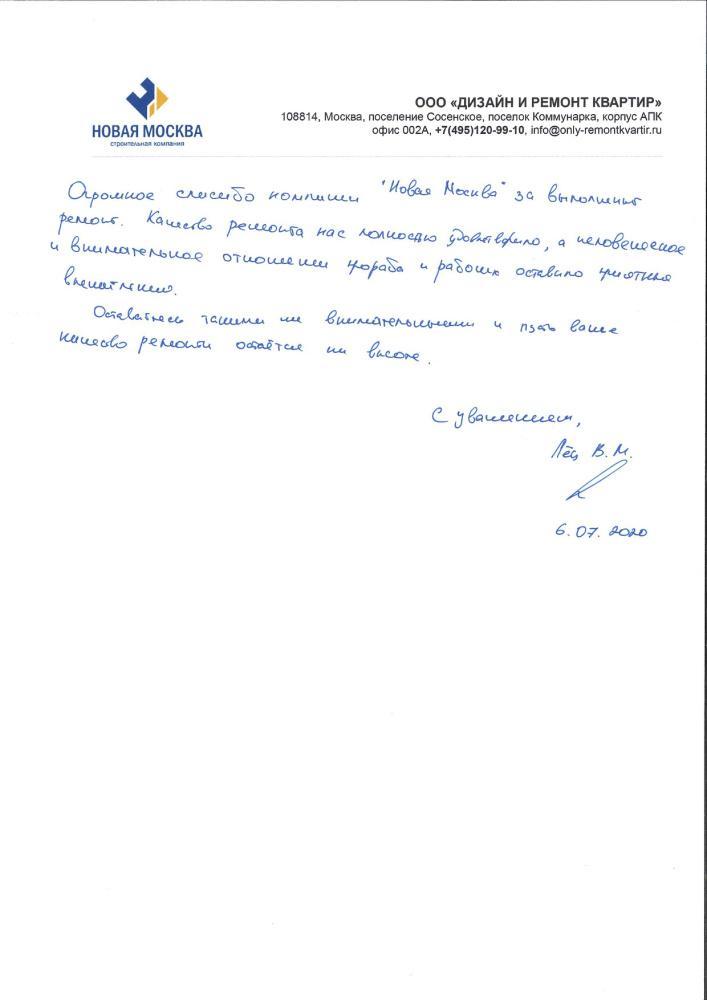 НОВАЯ МОСКВА
строительная компания
ООО «ДИЗАЙН И РЕМОНТ КВАРТИР»
108814, Москва, поселение Сосенское, поселок Коммунарка, корпус АПК
офис 002А, +7(495)120-99-10, info@only-remontkvartir.ru
Огромное спасибо компании "Новая Москва" за выполненный
ремонт. Качество ремонта нас полностью удовлетворило, а человеческое
и внимательное отношение прораба и рабочих оставило приятные
впечатления.
Оставайтесь такими же внимательными и пусть ваше
качество ремонта остаётся на высоте.
С уважением,
В. М.
6.07.2020